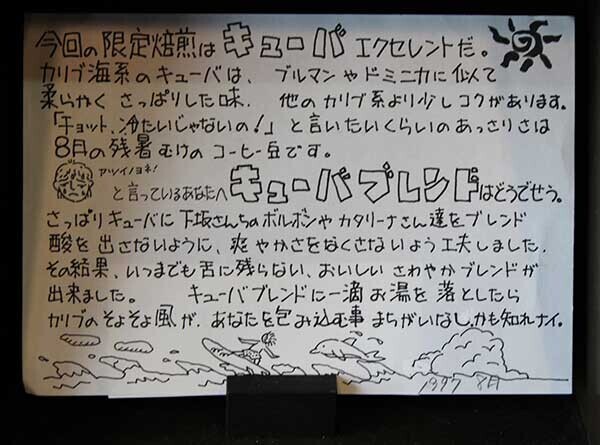 今回の限定焙煎は キューバ エクセレントだ。
カリブ海系のキューバは、ブルマンやドミニカに似て
柔らかく さっぱりした味、他のカリブ系より少しコクがあります。
「チョット、冷たいじゃないの!」と言いたいくらいのあっさりさは
8月の残暑むけのコーヒー豆です。
アツイノヨネ!
と言っているあなたへ キューバブレンドはどうでせう。
さっぱりキューバに下坂さんちのボルボンやカタリーナさん達をブレンド
酸を出さないように、爽やかさをなくさないよう工夫しました.
その結果、いつまでも舌に残らない、おいしい さわやかブレンドが
出来ました。 キューバブレンドに一滴お湯を落としたら
カリブのそよそよ風が、あなたを包み込む事 まちがいなし、かも知れナイ。
1997 8月